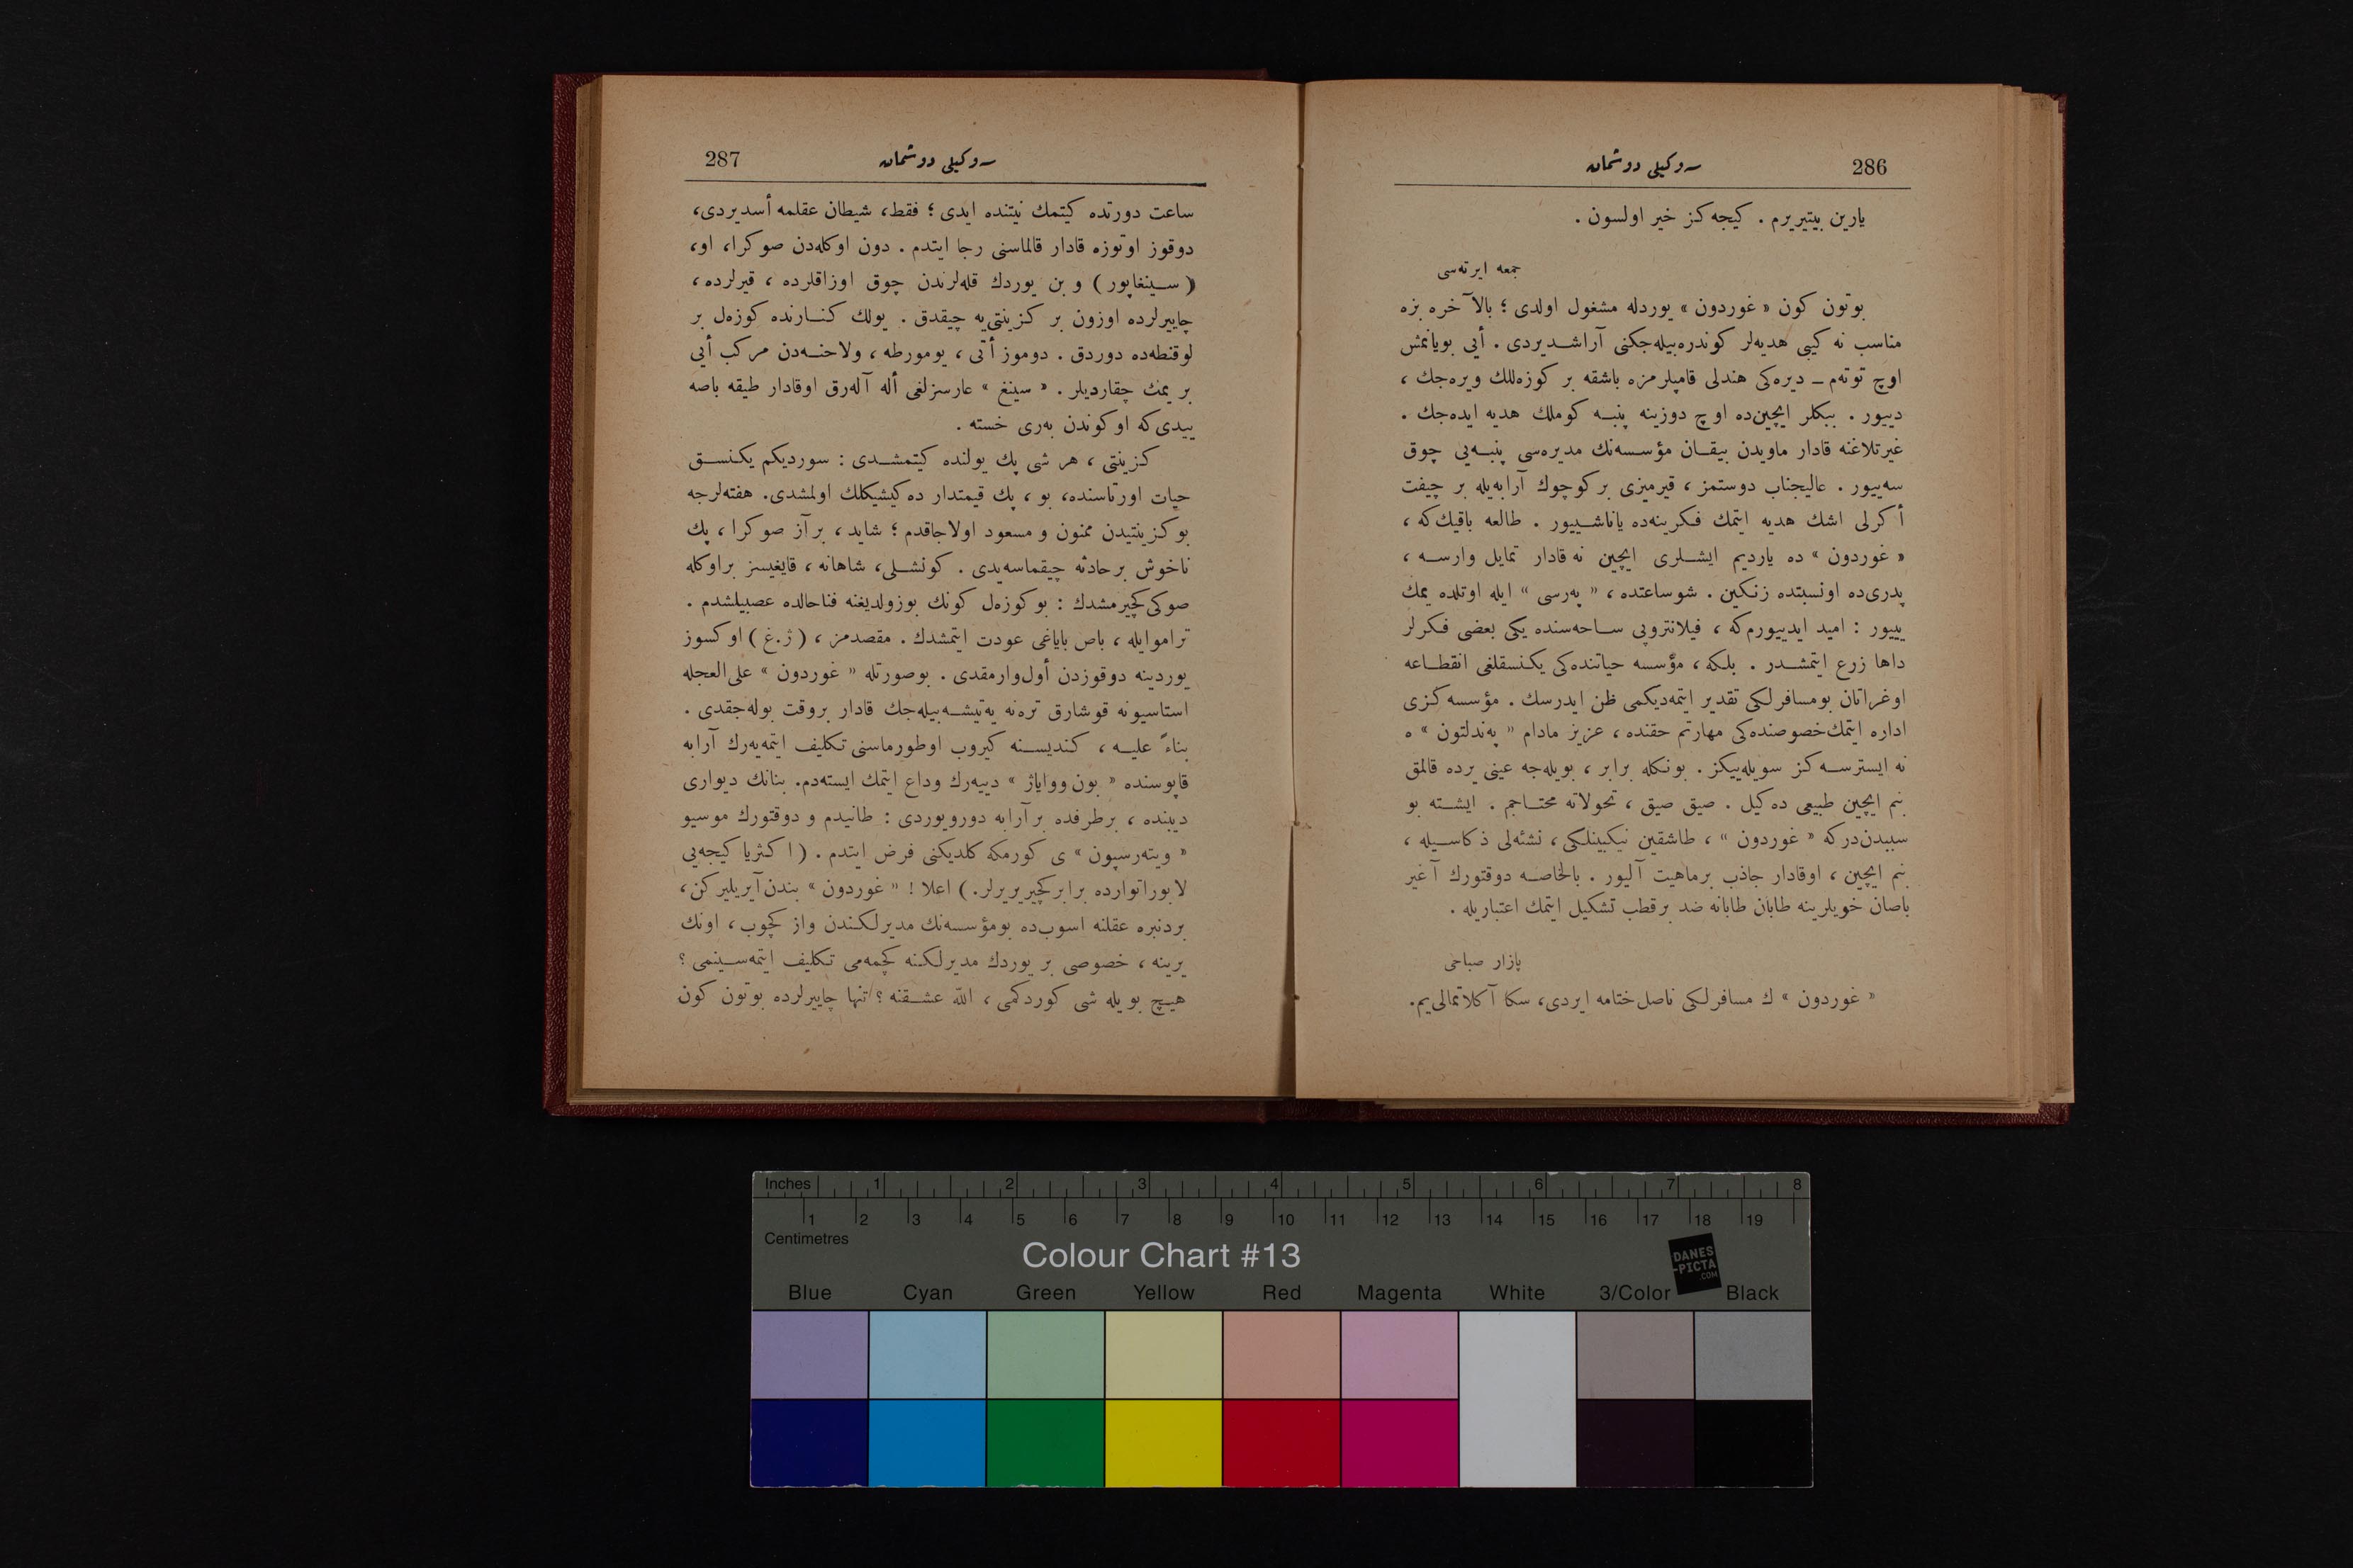 286 سوكیلی دوشمان
یارین بیتیریرم . كیجه‌كز خیر اولسون .
جمعه ایرته‌سی
بوتون كون « غوردون » یوردله مشغول اولدی ؛ بالآ خره بزه
مناسب نه كیبی هدیه‌لر كوندره‌بیله‌جكنی آراشـدیردی . أیی بویانمش
اوچ توته‌م ـ دیره‌كی هندلی قامپلرمزه باشقه بر كوزه‌للك ویره‌جك ،
دییور . ببكلر ایچین‌ده اوچ دوزینه پنبـه كوملك هدیه ایده‌جك .
غیرتلاغنه قادار ماویدن بیقـان مؤسـسه‌نك مدیره‌سی پنبـه‌یی چوق
سه‌ییور . عالیجناب دوستمز ، قیرمیزی بركوچوك آرابه‌یله بر چیفت
أكرلی اشك هدیه ایتمك فـكرینه‌ده یاناشـییور . طالعه باقیك‌كه ،
« غوردون » ده یاردیم ایشـلری ایچین نه قادار تمایل وارسـه ،
پدری‌ده اونسبتده زنكین . شوساعتده ، « په‌رسی » ایله اوتلده یمك
ییییور : امید ایدییورم‌كه ، فیلانتروپی سـاحه‌سنده یكی بعضی فـكرلر
داها زرع ایتمشـدر . بلـكه ، مؤسسه حیاتنده‌كی یكـنسقلغی انقطـاعه
اوغراتان بومسافرلكی تقدیر ایتمه‌دیكمی ظن ایدرسك . مؤسسه‌كزی
اداره ایتمك خصوصنده‌كی مهارتم حقنده ، عزیز مادام « په‌ندلتون » ه
نه ایسترسـه‌كز سویله‌ییكز . بونـكله برابر ، بویله‌جه عینی یرده قالمق
بنم ایچین طبیعی ده‌كیل . صیق صیق ، تحولاته محتـاجم . ایشـته بو
سببدن‌دركه « غوردون » ، طاشقین نیكبینلـكی ، نشئه‌لی ذكاسـیله ،
بنم ایچین ، اوقادار جاذب برماهیت آلیور . بالخاصـه دوقتورك آغیر
باصان خویلرینه طابان طابانه ضد برقطب تشكیل ایتمك اعتباریله .
پازار صباحی
« غوردون » ك مسافرلـكی ناصل ختامه ایردی، سكا آكلاتمالی‌یم.
287 سوكیلی دوشمان
ساعت دورتده كیتمك نیتنده ایدی ؛ فقط، شیطان عقلمه أسدیردی،
دوقوز اوتوزه قادار قالماسنی رجا ایتدم . دون اوكله‌دن صوكرا، او،
( سـینغاپور ) و بن یوردك قله‌لرندن چوق اوزاقلرده ، قیرلرده ،
چاییرلرده اوزون بر كـزینتی‌یه چیقدق . یولك كنـارنده كوزه‌ل بر
لوقنطه‌ده دوردق . دوموز أتی ، یومورطه ، ولاحنـه‌دن مركب أیی
بر یمك چقاردیلر . « سینغ » عارسزلغی أله آله‌رق اوقادار طیقه باصه
ییدی‌كه اوكوندن به‌ری خسته .
كزینتی ، هر شی پك یولنده كیتمشـدی : سوردیكم یكـنسـق
حیات اورتاسنده، بو ، پك قیمتدار ده‌كیشیكلك اولمشدی. هفته‌لرجه
بوكزینتیدن ممنون و مسعود اولاجاقدم ؛ شاید ، برآز صوكرا ، پك
ناخوش برحادثه چیقماسه‌یدی . كونشـلی، شاهانه ، قایغیسز براوكله
صوكی‌كچیرمشدك : بوكوزه‌ل كونك بوزولدیغنه فناحالده عصبیلشدم .
تراموایله ، باص بایاغی عودت ایتمشدك . مقصدمز ، ( ژ.غ ) اوكسوز
یوردینه دوقوزدن أول‌وارمقدی . بوصورتله « غوردون » علی‌العجله
استاسیونه قوشارق ترنه یه‌تیشـه‌بیله‌جك قادار بروقت بوله‌جقدی .
بناءً علیـه ، كندیسـنه كیروب اوطورماسنی تكلیف ایتمه‌یه‌رك آرابه
قاپوسنده « بون ووایاژ » دییه‌رك وداع ایتمك ایسته‌دم. بنانك دیواری
دیبنده ، برطرفده برآرابه دورویوردی : طانیدم و دوقتورك موسیو
« ویته‌رسپون » ی كورمكه كلدیكنی فرض ایتدم . ( اكثریا كیجه‌یی
لابوراتوارده برابركچیریرلر. ) اعلا ! « غوردون » بندن آیریلیركن،
بردنبره عقلنه اسوب‌ده بومؤسسه‌نك مدیرلـكندن وازكچوب ، اونك
یرینه ، خصوصی بر یوردك مدیرلـكنه كچمه‌می تـكلیف ایتمه‌سـینمی ؟
هیچ بویله شی كوردكمی ، الله عشـقنه ؟ تنها چاییرلرده بوتون كون
Inches 1 2 3 4 5 6 7 8
1 2 3 4 5 6 7 8 9 10 11 12 13 14 15 16 17 18 19
Centimetres
Colour Chart #13
DANES
-PICTA
.COM
Blue Cyan Green Yellow Red Magenta White 3/Color Black